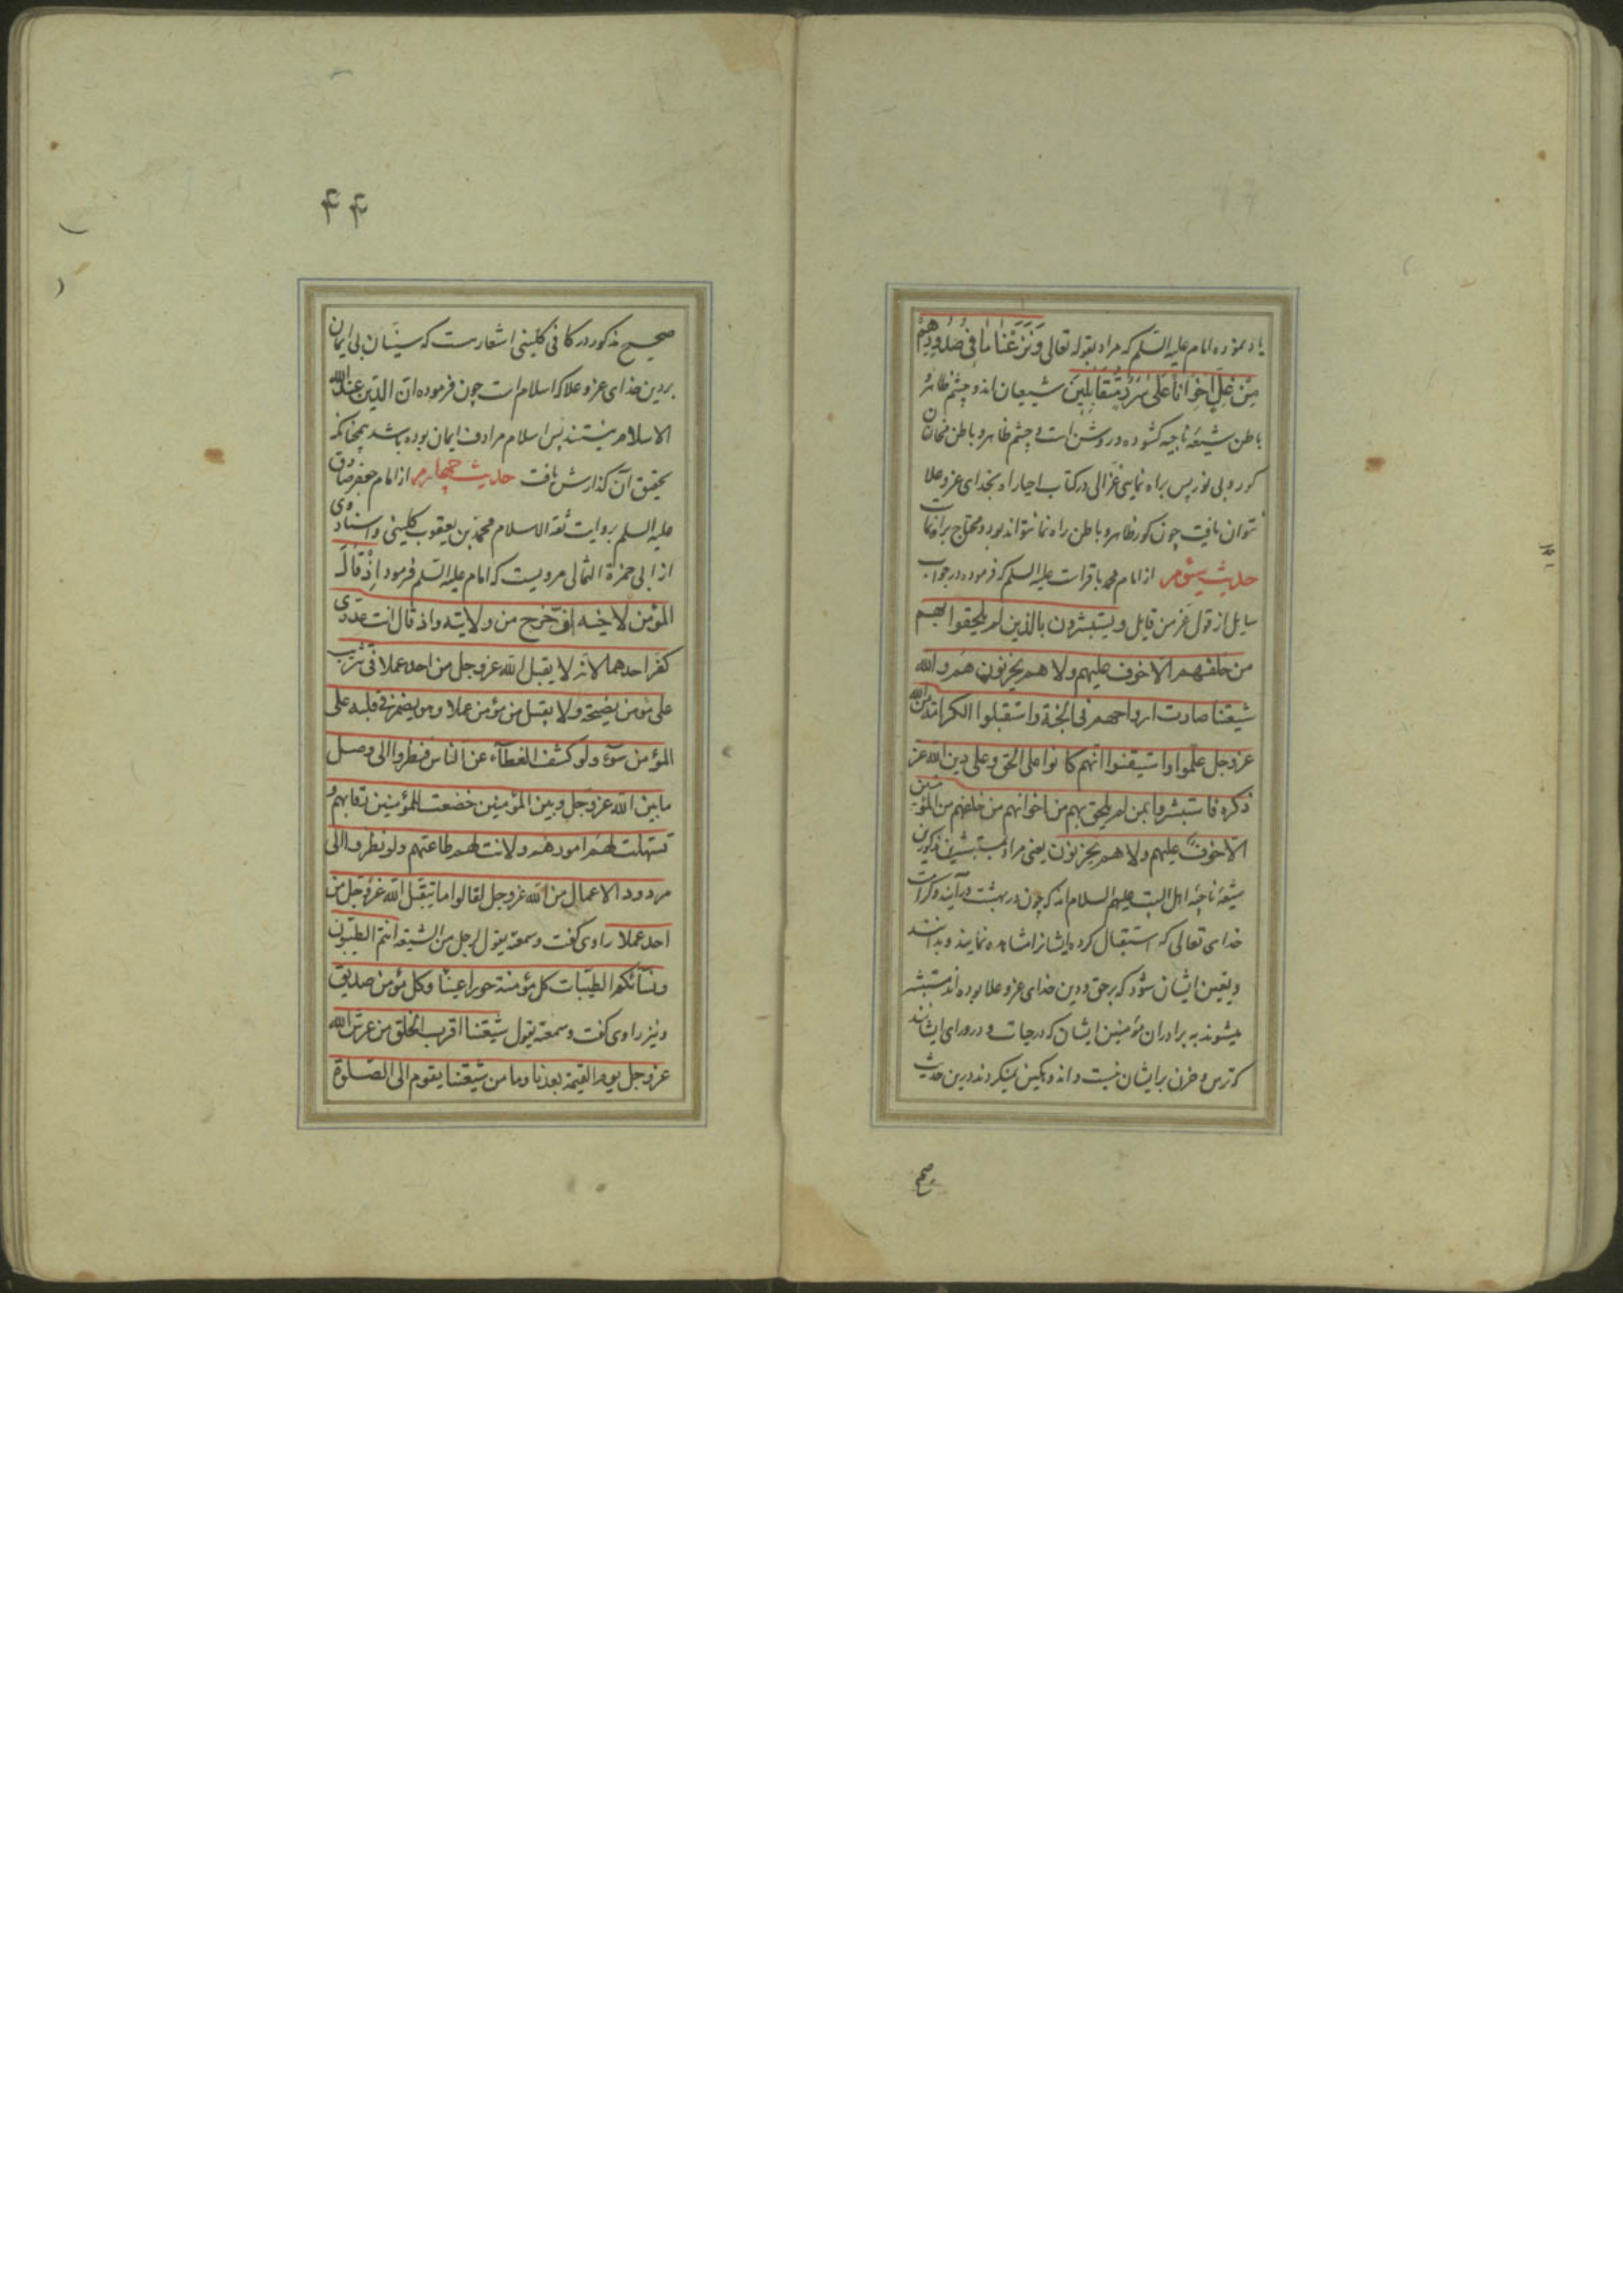 یاد نموده امام علیه السلم که مراد بقوله تعالی وَنَزَعْنَا مَا فِی صُدُورِهِمْ
مِنْ غِلٍّ اِخْوَانًا عَلَی سُرُرٍ مُتَقَابِلِینَ شیعیان اند و چشم ظاهر و
باطن شیعه ناجیه کشوده و روشن است و چشم ظاهر و باطن مخالفان
کور و بی نور پس براه نمایی غزالی در کتاب احیا راه بخدای عز و علا
نتوان یافت چون کور ظاهر و باطن راه نما نتواند بود و محتاج براه نما
حدیث سیّوم از امام محمد باقر است علیه السلم که فرموده در جواب
سایل از قول عز من قایل و یستبشرون بالذین لم یلحقوا بهم
من خلفهم الا خوف علیهم ولا هم یحزنون هم والله
شیعتنا صارت ارواحهم فی الجنة واستقبلوا الکرامة من الله
عز وجل علموا واستیقنوا انهم کانوا علی الحق وعلی دین الله عز
ذکره فاستبشروا بمن لم یلحق بهم من اخوانهم من خلفهم من المؤمنین
الا خوف علیهم ولا هم یحزنون یعنی مراد بمستبشرین مذکورین
شیعهٔ ناجیهٔ اهل البیت علیهم السلام اند که چون در بهشت درآیند و کرامت
خدای تعالی که استقبال کرده ایشانرا مشاهده نمایند و بدانند
و یقین ایشان شود که برحق و دین خدای عز و علا بوده اند مستبشر
میشوند به برادران مؤمنین ایشان که درجات و در ورای ایشانند
که ترس و حزن بر ایشان نیست و اندوهکین نمیکردند درین حدیث
صحیح
۴۴
صحیح مذکور در کافی کلینی اشعاریست که سینیان بی ایمان
بر دین خدای عز و علا که اسلام است چون فرموده ان الدین عند الله
الاسلام نیستند پس اسلام مرادف ایمان بوده باشد همچنانکه
تحقیق آن کذارش یافت حدیث چهارم از امام جعفر صادق
علیه السلم بروایت ثقة الاسلام محمد بن یعقوب کلینی و اسناد وی
از ابی حمزة الثمالی مرویست که امام علیه السلم فرمود اِذْ قَالَ
المؤمن لاخیه اف خرج من ولایته واذ قال انت عدوی
کفر احدهما لانه لا یقبل الله عز وجل من احد عملا فی تثریب
علی مؤمن نصیحة ولا یقبل من مؤمن عملا وهو یضمر فی قلبه علی
المؤمن سوء ولو کشف الغطاء عن الناس فنظروا الی وصل
ما بین الله عز وجل وبین المؤمنین خضعت للمؤمنین رقابهم و
تسهلت لهم امورهم ولانت لهم طاعتهم ولو نظروا الی
مردود الاعمال من الله عز وجل لقالوا ما یتقبل الله عز وجل من
احد عملا راوی کفت و سمعته یقول لرجل من الشیعة انتم الطیبون
ونسآئکم الطیبات کل مؤمنة حوراء عیناء وکل مؤمن صدیق
و نیز راوی کفت و سمعته یقول شیعتنا اقرب الخلق من عرش الله
عز وجل یوم القیمة بعدنا وما من شیعتنا یقوم الی الصلوة